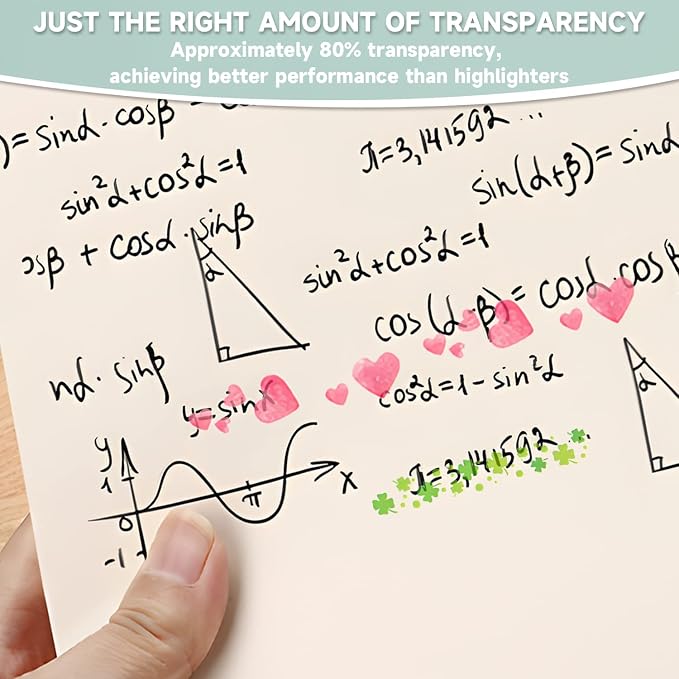 JUST THE RIGHT AMOUNT OF TRANSPARENCY
Approximately 80% transparency,
achieving better performance than highlighters
)= sinα·cosβ
π=3,141592 ...
sin²α+cos²α=1
sin(α+β)= sinα
osβ + cosα·sinβ
α
sin²α+cos²α=1
cos(α-β)= cosα·cosβ
nα· sinβ
cos²α=1-sin²α
α
y=sinx
y
1
π=3,141592 ...
x
0
π
-1